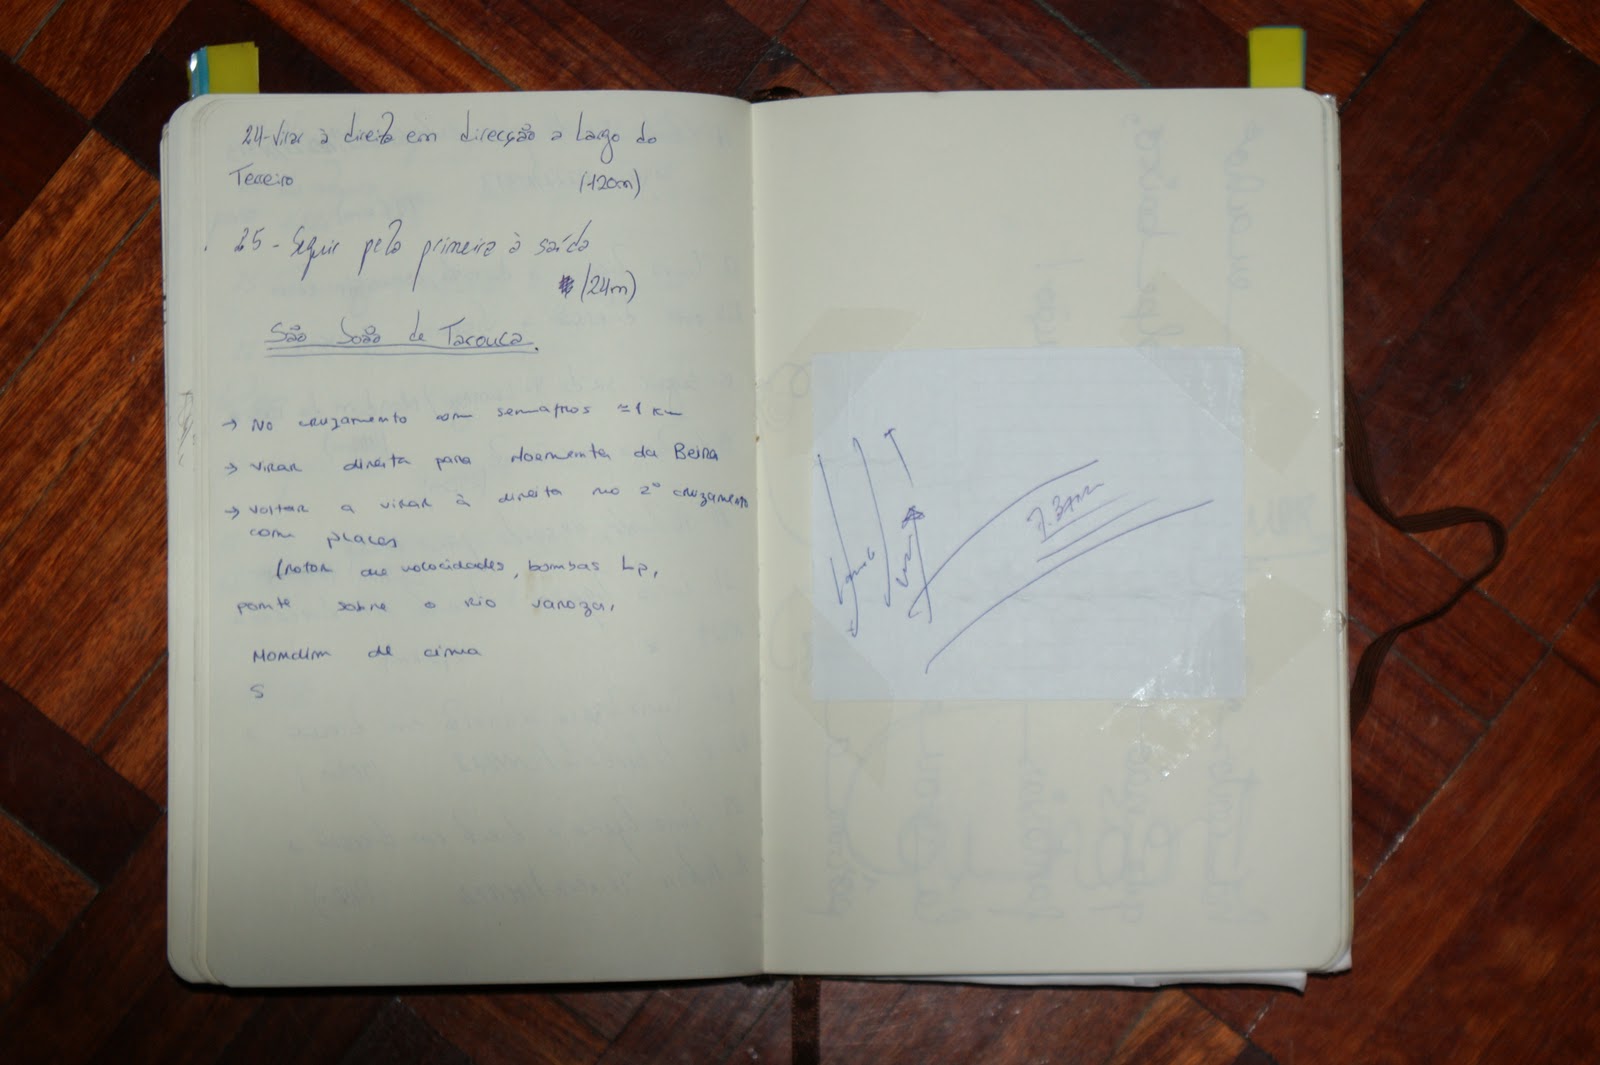 24-Virar à direita em direcção a Largo do
Terreiro (120m)
25 - Seguir pela primeira à saída
(24m)
São João de Tarouca.
→ No cruzamento com semafros ≈1 Km
→ virar direita para Moementa da Beira
→ voltar a virar à direita no 2º cruzamento
com placas
(rotom de volocidades, bombas Lp,
ponte sobre o Rio varoza,
Mondim de cima
S